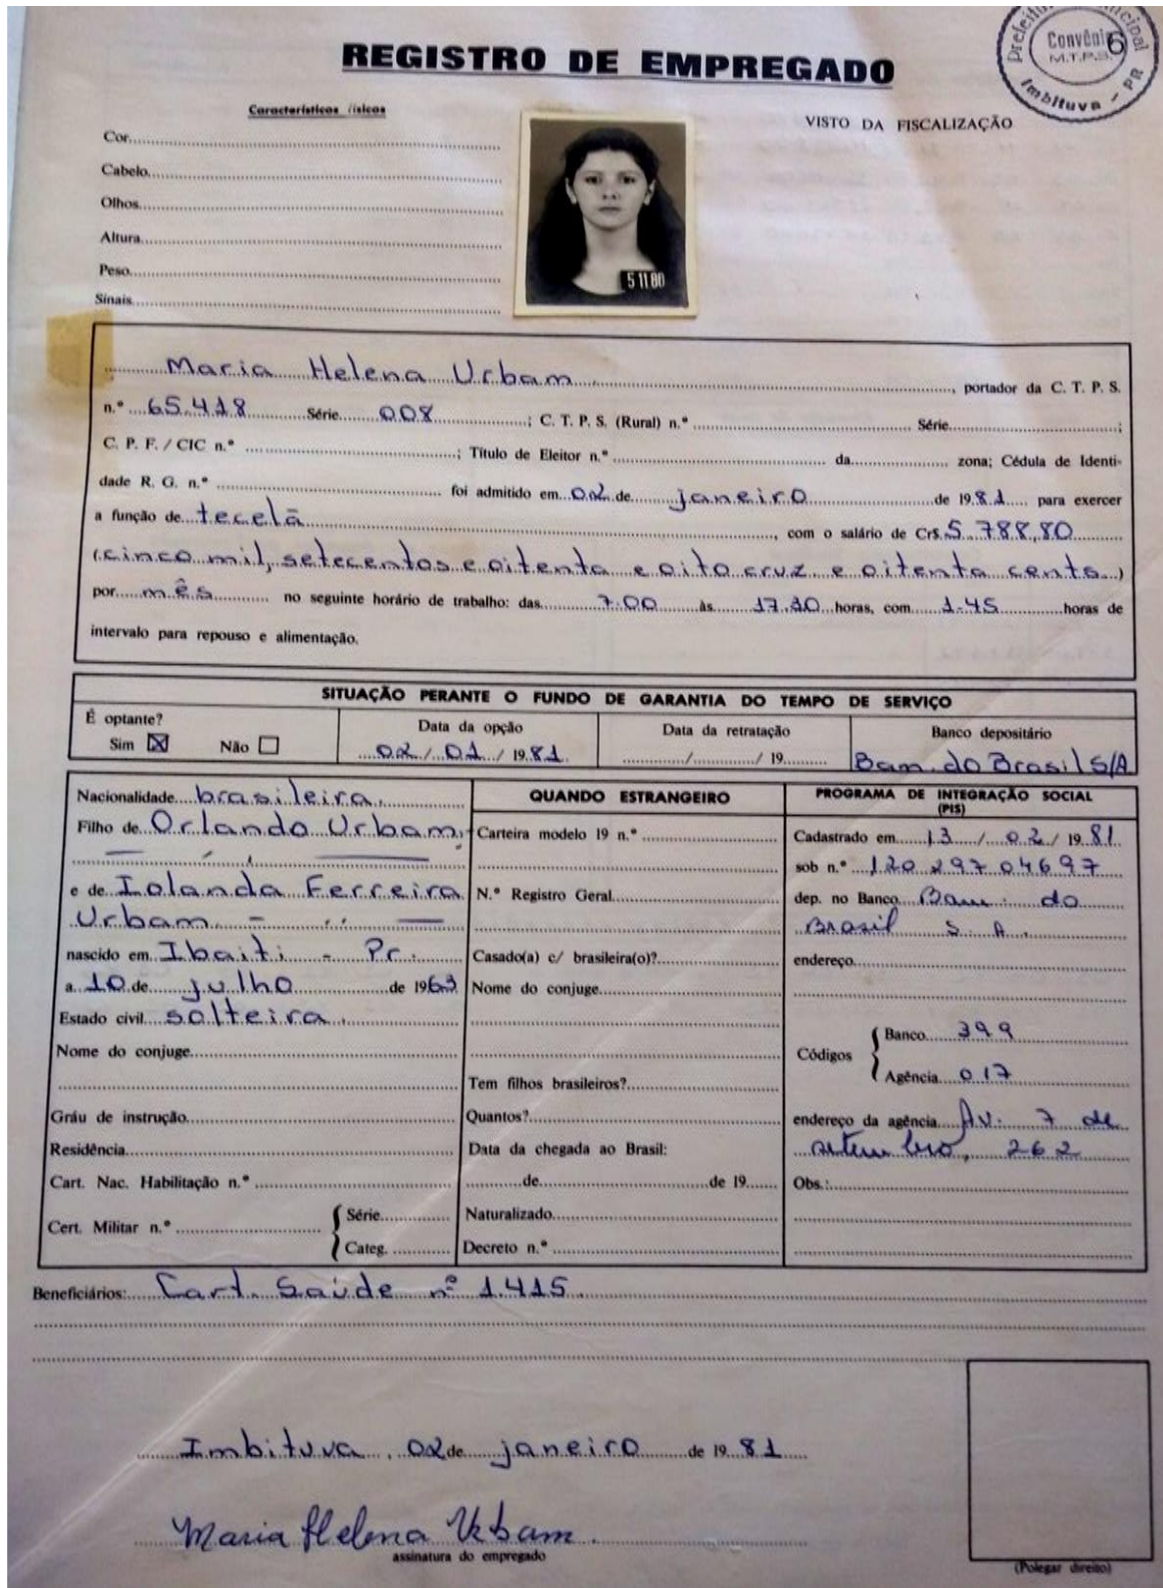 Prefeitura Municipal
Convênio 6
M.T.P.S.
Imbituva - PR
REGISTRO DE EMPREGADO
Característicos físicos
VISTO DA FISCALIZAÇÃO
Cor
Cabelo
Olhos
Altura
Peso
Sinais
5 11 80
Maria Helena Urbam, portador da C. T. P. S.
n.º 65.418 Série 008; C. T. P. S. (Rural) n.º Série;
C. P. F. / CIC n.º; Título de Eleitor n.º da zona; Cédula de Identi-
dade R. G. n.º foi admitido em 02 de janeiro de 1981 para exercer
a função de tecelã, com o salário de Cr$ 5.788,80
(cinco mil, setecentos e oitenta e oito cruz e oitenta cents)
por mês no seguinte horário de trabalho: das 7.00 às 17.30 horas, com 1.45 horas de
intervalo para repouso e alimentação.
SITUAÇÃO PERANTE O FUNDO DE GARANTIA DO TEMPO DE SERVIÇO
É optante?
Sim ☒ Não ☐
Data da opção
02 / 01 / 1981
Data da retratação
/ / 19
Banco depositário
Bam. do Brasil S/A
Nacionalidade brasileira.
Filho de Orlando Urbam,
e de Iolanda Ferreira
Urbam
nascido em Ibaiti - Pr.
a 10 de julho de 1963
Estado civil solteira.
Nome do conjuge
Gráu de instrução
Residência
Cart. Nac. Habilitação n.º
Cert. Militar n.º { Série
Categ.
QUANDO ESTRANGEIRO
Carteira modelo 19 n.º
N.º Registro Geral
Casado(a) c/ brasileira(o)?
Nome do conjuge
Tem filhos brasileiros?
Quantos?
Data da chegada ao Brasil:
de de 19
Naturalizado
Decreto n.º
PROGRAMA DE INTEGRAÇÃO SOCIAL
(PIS)
Cadastrado em 13 / 02 / 1981
sob n.º 120 297 04697
dep. no Banco Bam. do
Brasil S. A.
endereço
Códigos { Banco 399
Agência 017
endereço da agência Av. 7 de
setembro, 262
Obs.:
Beneficiários: Cart. Saúde nº 1.415.
Imbituva, 02 de janeiro de 1981
Maria Helena Urbam.
assinatura do empregado
(Polegar direito)